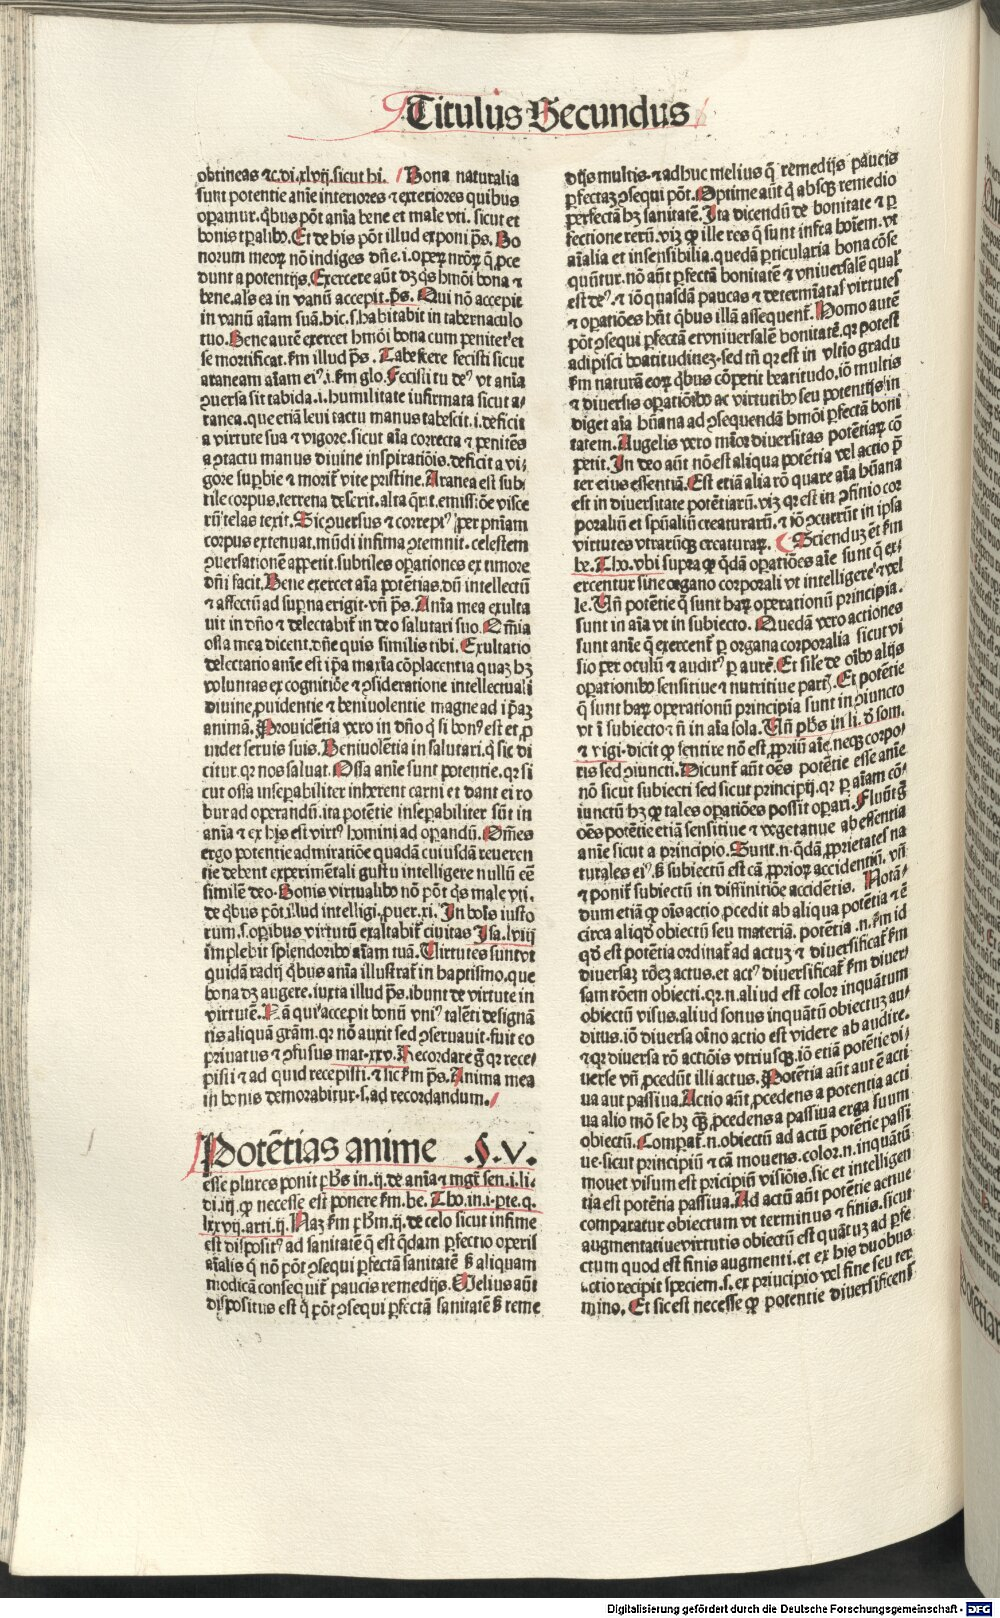 Titulus Secundus
obtineas ⁊c.di.xlvij.sicut hi. Bona naturalia
sunt potentie anīe interiores ⁊ exteriores quibus
opamur. q̄bus pōt anīa bene et male vti. sicut et
bonis tpalibꝰ. Et de his pōt illud exponi ps̄. Bo
norum meoꝝ nō indiges dn̄e.i.opeꝝ nr̄oꝝ q̄ pce
dunt a potentijs. Exercere aūt dꝫ q̄s hmōi bona ⁊
bene. als̄ ea in vanū accepit. ps̄. Qui nō accepit
in vanū aīam suā. hic.s. habitabit in tabernaculo
tuo. Bene autē exercet hmōi bona cum penitet et
se mortificat. fm illud ps̄. Tabescere fecisti sicut
araneam aīam eiꝰ.i. fm glo. Fecisti tu deꝰ vt anīa
ꝯuersa sit tabida.i. humilitate infirmata sicut a-
ranea. que etiā leui tactu manus tabescit.i. deficit
a virtute sua ⁊ vigore. sicut aīa correcta ⁊ penitēs
a ꝯtactu manus diuine inspiratiōis. deficit a vi-
gore supbie ⁊ morit̄ vite pristine. Aranea est sub
tile corpus. terrena deserit. alta q̄rit. emissiōe visce
rū telas texit. Sic ꝯuersus ⁊ correptꝰ per pn̄iam
corpus extenuat. mūdi infima ꝯtemnit. celestem
ꝯuersationē appetit. subtiles operationes ex timore
dn̄i facit. Bene exercet aīa potētias. dū intellectū
⁊ affectū ad supna erigit. vn̄ ps̄. Anīa mea exulta
uit in dn̄o ⁊ delectabit̄ in deo salutari suo. Om̄ia
ossa mea dicent. dn̄e quis similis tibi. Exultatio
delectatio anīe est ip̄a maxīa cōplacentia quaꝫ hꝫ
voluntas ex cognitiōe ⁊ ꝯsideratione intellectuali
diuine ꝓuidentie ⁊ beniuolentie magne ad ip̄aꝫ
animā. Prouidētia vero in dn̄o q̄ si bonꝰ est et ꝓ
uidet seruis suis. Beniuolētia in salutari. q̄ sic di
citur. qꝛ nos saluat. Ossa anīe sunt potentie. qꝛ si
cut ossa inseparabiliter inherent carni et dant ei ro
bur ad operandū. ita potētie inseparabiliter sūt in
anīa ⁊ ex his est virtꝰ homini ad opandū. Om̄es
ergo potentie admiratiōe quadā cuiusdā reueren
tie debent experimētali gustu intelligere nullū eē
similē deo. Bonis virtualibꝰ nō pōt q̄s male vti.
de q̄bus pōt illud intelligi. puer.xi. In bonis iusto
rum.s. opibus virtutū exaltabit̄ ciuitas Isa.lviij
implebit splendoribꝰ aīam tuā. Uirtutes sunt vt
quidā radij q̄bus anīa illustrat̄ in baptismo. que
bona dꝫ augere. iuxta illud ps̄. ibunt de virtute in
virtutē. Nā qui accepit bonū vniꝰ talēti designā
tis aliquā grām. qꝛ nō auxit sed ꝯseruauit. fuit eo
priuatus ⁊ ꝯfusus mat.xxv. Recordare g̊ qꝛ rece-
pisti ⁊ ad quid recepisti. ⁊ sic fm ps̄. Anima mea
in bonis demorabitur.s. ad recordandum.
Potētias anime .§.V.
esse plures ponit ph̄s in.ij. de anīa ⁊ mgr̄ sen.i.li-
di.iij. ꝙ necesse est ponere fm. be. Tho.in.i.pte.q.
lxxvij.arti.ij. Naꝫ fm ph̄m.ij. de celo sicut infime
est dispositꝰ ad sanitatē q̄ est q̄dam pfectio operis
aīalis q̄ nō pōt ꝯsequi pfectā sanitatē s̄ aliquam
modicā consequit̄ paucis remedijs. Melius aūt
dispositus est q̄ pōt ꝯsequi pfectā sanitatē s̄ reme
dijs multis. ⁊ adhuc melius q̄ remedijs paucis
pfectaꝫ ꝯsequi pōt. Optime aūt q̄ absqꝫ remedio
perfectā hꝫ sanitatē. Ita dicendū de bonitate ⁊ p
fectione rerū. viꝫ ꝙ ille res q̄ sunt infra hoīem. vt
aīalia et insensibilia. quedā pticularia bona cōse
quūtur. nō aūt pfectā bonitatē ⁊ vniuersalē qual̄
est deꝰ. ⁊ iō quasdā paucas ⁊ determīatas virtutes
⁊ opatiōes hn̄t q̄bus illā assequent̄. Homo autē
pōt ꝯsequi pfectā et vniuersalē bonitatē. qꝛ potest
adipisci beatitudineꝫ. sed tn̄ qꝛ est in vltīo gradu
fm naturā eoꝝ q̄bus cōpetit beatitudo. iō multis
⁊ diuersis opatiōibꝰ ac virtutibꝰ seu potentijs in
diget aīa hūana ad ꝯsequendā hmōi pfectā boni
tatem. Angelis vero mīor diuersitas potētiaꝝ cō
petit. In deo aūt nō est aliqua potētia vel actio p̄
ter eius essentiā. Est etiā alia rō quare aīa hūana
est in diuersitate potētiarū. viꝫ qꝛ est in ꝯfinio cor
poraliū et spūaliū creaturarū. ⁊ iō ꝯcurrūt in ipsa
virtutes vtrarūqꝫ creaturaꝝ. Sciendū ēt fm
be. Tho. vbi supra ꝙ q̄dā opatiōes aīe sunt q̄ ex-
ercentur sine organo corporali vt intelligere ⁊ vel
le. Un̄ potētie q̄ sunt haꝝ operationū principia.
sunt in aīa vt in subiecto. Quedā vero actiones
sunt anīe q̄ exercent̄ p organa corporalia sicut vi
sio per oculū ⁊ auditꝰ p aurē. Et sil̄e de oībꝰ alijs
operationibꝰ sensitiue ⁊ nutritiue partꝭ. Et potētie
q̄ sunt haꝝ operationū principia sunt in ꝯiuncto
vt ī subiecto ⁊ n̄ in aīa sola. Un̄ ph̄s in li. d̄ som.
⁊ vigi. dicit ꝙ sentire nō est ꝓpriū aīe. neqꝫ corpo-
ris sed ꝯiuncti. Dicunt̄ aūt oēs potētie esse anīe
nō sicut subiecti sed sicut principij. qꝛ p aīam cō-
iunctū hꝫ ꝙ tales opatiōes possit opari. Fluūt g̊
oēs potētie etiā sensitiue ⁊ vegetatiue ab essentia
anīe sicut a principio. Sunt.n.q̄dā ꝓprietates na
turales eiꝰ. s̄ subiectū est cā ꝓprioꝝ accidentiū. vn̄
⁊ ponit̄ subiectū in diffinitiōe accidētis. Notā-
dum etiā ꝙ oīs actio ꝓcedit ab aliqua potētia ⁊ ē
circa aliqd̄ obiectū seu materiā. potētia.n. fm id
qd̄ est potētia ordinat̄ ad actuꝫ ⁊ diuersificat̄ fm
diuersaꝫ rōeꝫ actus. et actꝰ diuersificat̄ fm diuer
sam rōem obiecti. qꝛ.n. aliud est color inquātum
obiectū visus. aliud sonus inquātū obiectuꝫ au-
ditus. iō diuersa oīno actio est videre ab audire.
⁊ qꝛ diuersa rō actiōis vtriusqꝫ. iō etiā potētie di-
uerse vn̄ ꝓcedūt illi actus. Potētia aūt aut ē acti
ua aut passiua. Actio aūt. ꝓcedens a potentia acti
ua alio mō se hꝫ q̄ꝫ ꝓcedens a passiua erga suum
obiectū. Compat̄.n. obiectū ad actū potētie passi
ue. sicut principiū ⁊ cā mouens. color.n. inquātū
mouet visum est pricipiū visiōis. sic et intelligen
tia est potētia passiua. Ad actū aūt potētie actiue
comparatur obiectum vt terminus ⁊ finis. sicut
augmentatiue virtutis obiectū est quātuꝫ ad pfe
ctum quod est finis augmenti. et ex his duobus
actio recipit speciem.s. ex principio vel fine seu ter
mino. Et sic est necesse ꝙ potentie diuersificent̄
Digitalisierung gefördert durch die Deutsche Forschungsgemeinschaft - DFG